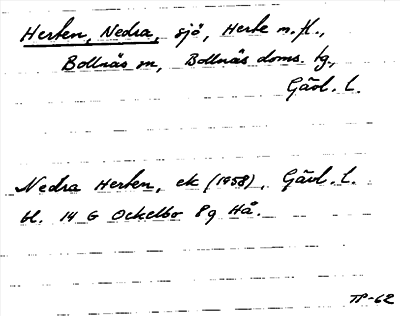 Herten, Nedra, sjö, Herte m.fl.,
Bollnäs sn, Bollnäs doms. tg,
Gävl. l.
Nedra Herten, ek (1958), Gävl. l.
bl. 14 G Ockelbo 8 g Hå.
TP-62